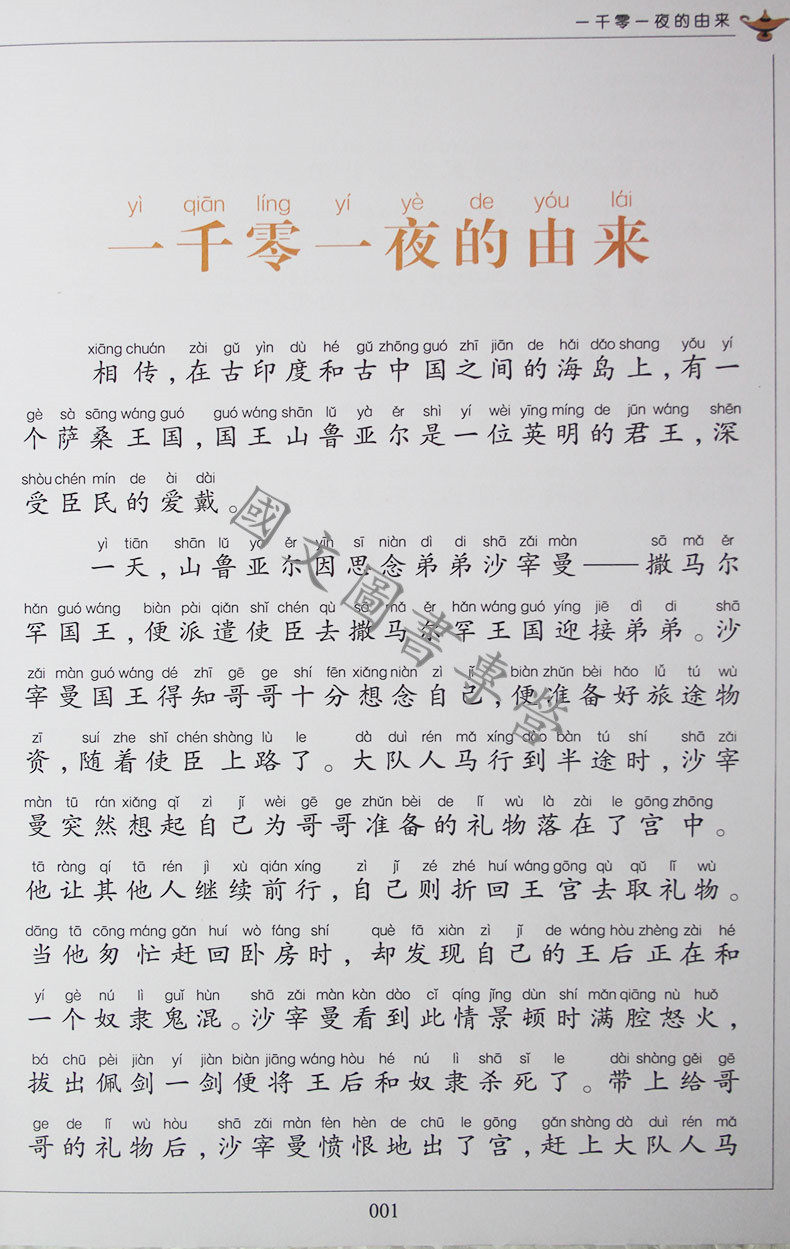 一千零一夜的由来
yì qiān líng yí yè de yóu lái
一千零一夜的由来
xiāng chuán zài gǔ yìn dù hé gǔ zhōng guó zhī jiān de hǎi dǎo shang yǒu yí
相传，在古印度和古中国之间的海岛上，有一
gè sà sāng wáng guó guó wáng shān lǔ yà ěr shì yí wèi yīng míng de jūn wáng shēn
个萨桑王国，国王山鲁亚尔是一位英明的君王，深
shòu chén mín de ài dài
受臣民的爱戴。
yì tiān shān lǔ yà ěr yīn sī niàn dì di shā zǎi màn sā mǎ ěr
一天，山鲁亚尔因思念弟弟沙宰曼——撒马尔
hǎn guó wáng biàn pài qiǎn shǐ chén qù sā mǎ ěr hǎn wáng guó yíng jiē dì di shā
罕国王，便派遣使臣去撒马尔罕王国迎接弟弟。沙
zǎi màn guó wáng dé zhī gē ge shí fēn xiǎng niàn zì jǐ biàn zhǔn bèi hǎo lǚ tú wù
宰曼国王得知哥哥十分想念自己，便准备好旅途物
zī suí zhe shǐ chén shàng lù le dà duì rén mǎ xíng dào bàn tú shí shā zǎi
资，随着使臣上路了。大队人马行到半途时，沙宰
màn tū rán xiǎng qǐ zì jǐ wèi gē ge zhǔn bèi de lǐ wù là zài le gōng zhōng
曼突然想起自己为哥哥准备的礼物落在了宫中。
tā ràng qí tā rén jì xù qián xíng zì jǐ zé zhé huí wáng gōng qù qǔ lǐ wù
他让其他人继续前行，自己则折回王宫去取礼物。
dāng tā cōng máng gǎn huí wò fáng shí què fā xiàn zì jǐ de wáng hòu zhèng zài hé
当他匆忙赶回卧房时，却发现自己的王后正在和
yí gè nú lì guǐ hùn shā zǎi màn kàn dào cǐ qíng jǐng dùn shí mǎn qiāng nù huǒ
一个奴隶鬼混。沙宰曼看到此情景顿时满腔怒火，
bá chū pèi jiàn yí jiàn biàn jiāng wáng hòu hé nú lì shā sǐ le dài shàng gěi gē
拔出佩剑一剑便将王后和奴隶杀死了。带上给哥
ge de lǐ wù hòu shā zǎi màn fèn hèn de chū le gōng gǎn shàng dà duì rén mǎ
哥的礼物后，沙宰曼愤恨地出了宫，赶上大队人马
001
國文圖書專營